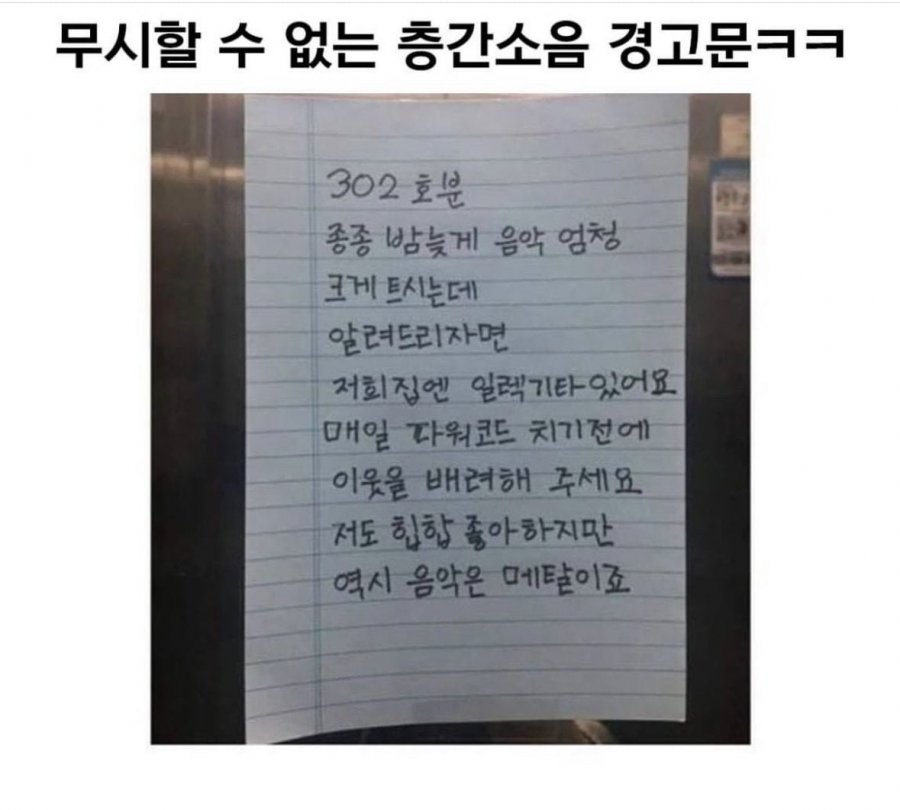 무시할 수 없는 층간소음 경고문ㅋㅋ
302 호분
종종 밤늦게 음악 엄청
크게 트시는데
알려드리자면
저희집엔 일렉기타있어요
매일 파워코드 치기전에
이웃을 배려해 주세요
저도 힙합 좋아하지만
역시 음악은 메탈이죠